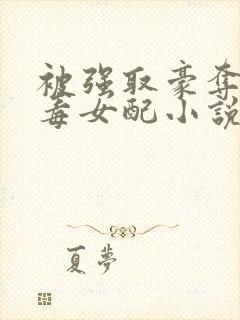 被强取豪夺
毒女配小說
夏夢